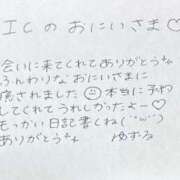 ICのおにいさま♡
会いに来てくれてありがとう
ふんわりなおにいさまに
癒されました☺本当に予約
してくれてうれしかったよー♡
もっかい日記書くね(´˘`)
ありがとう
ゆずる